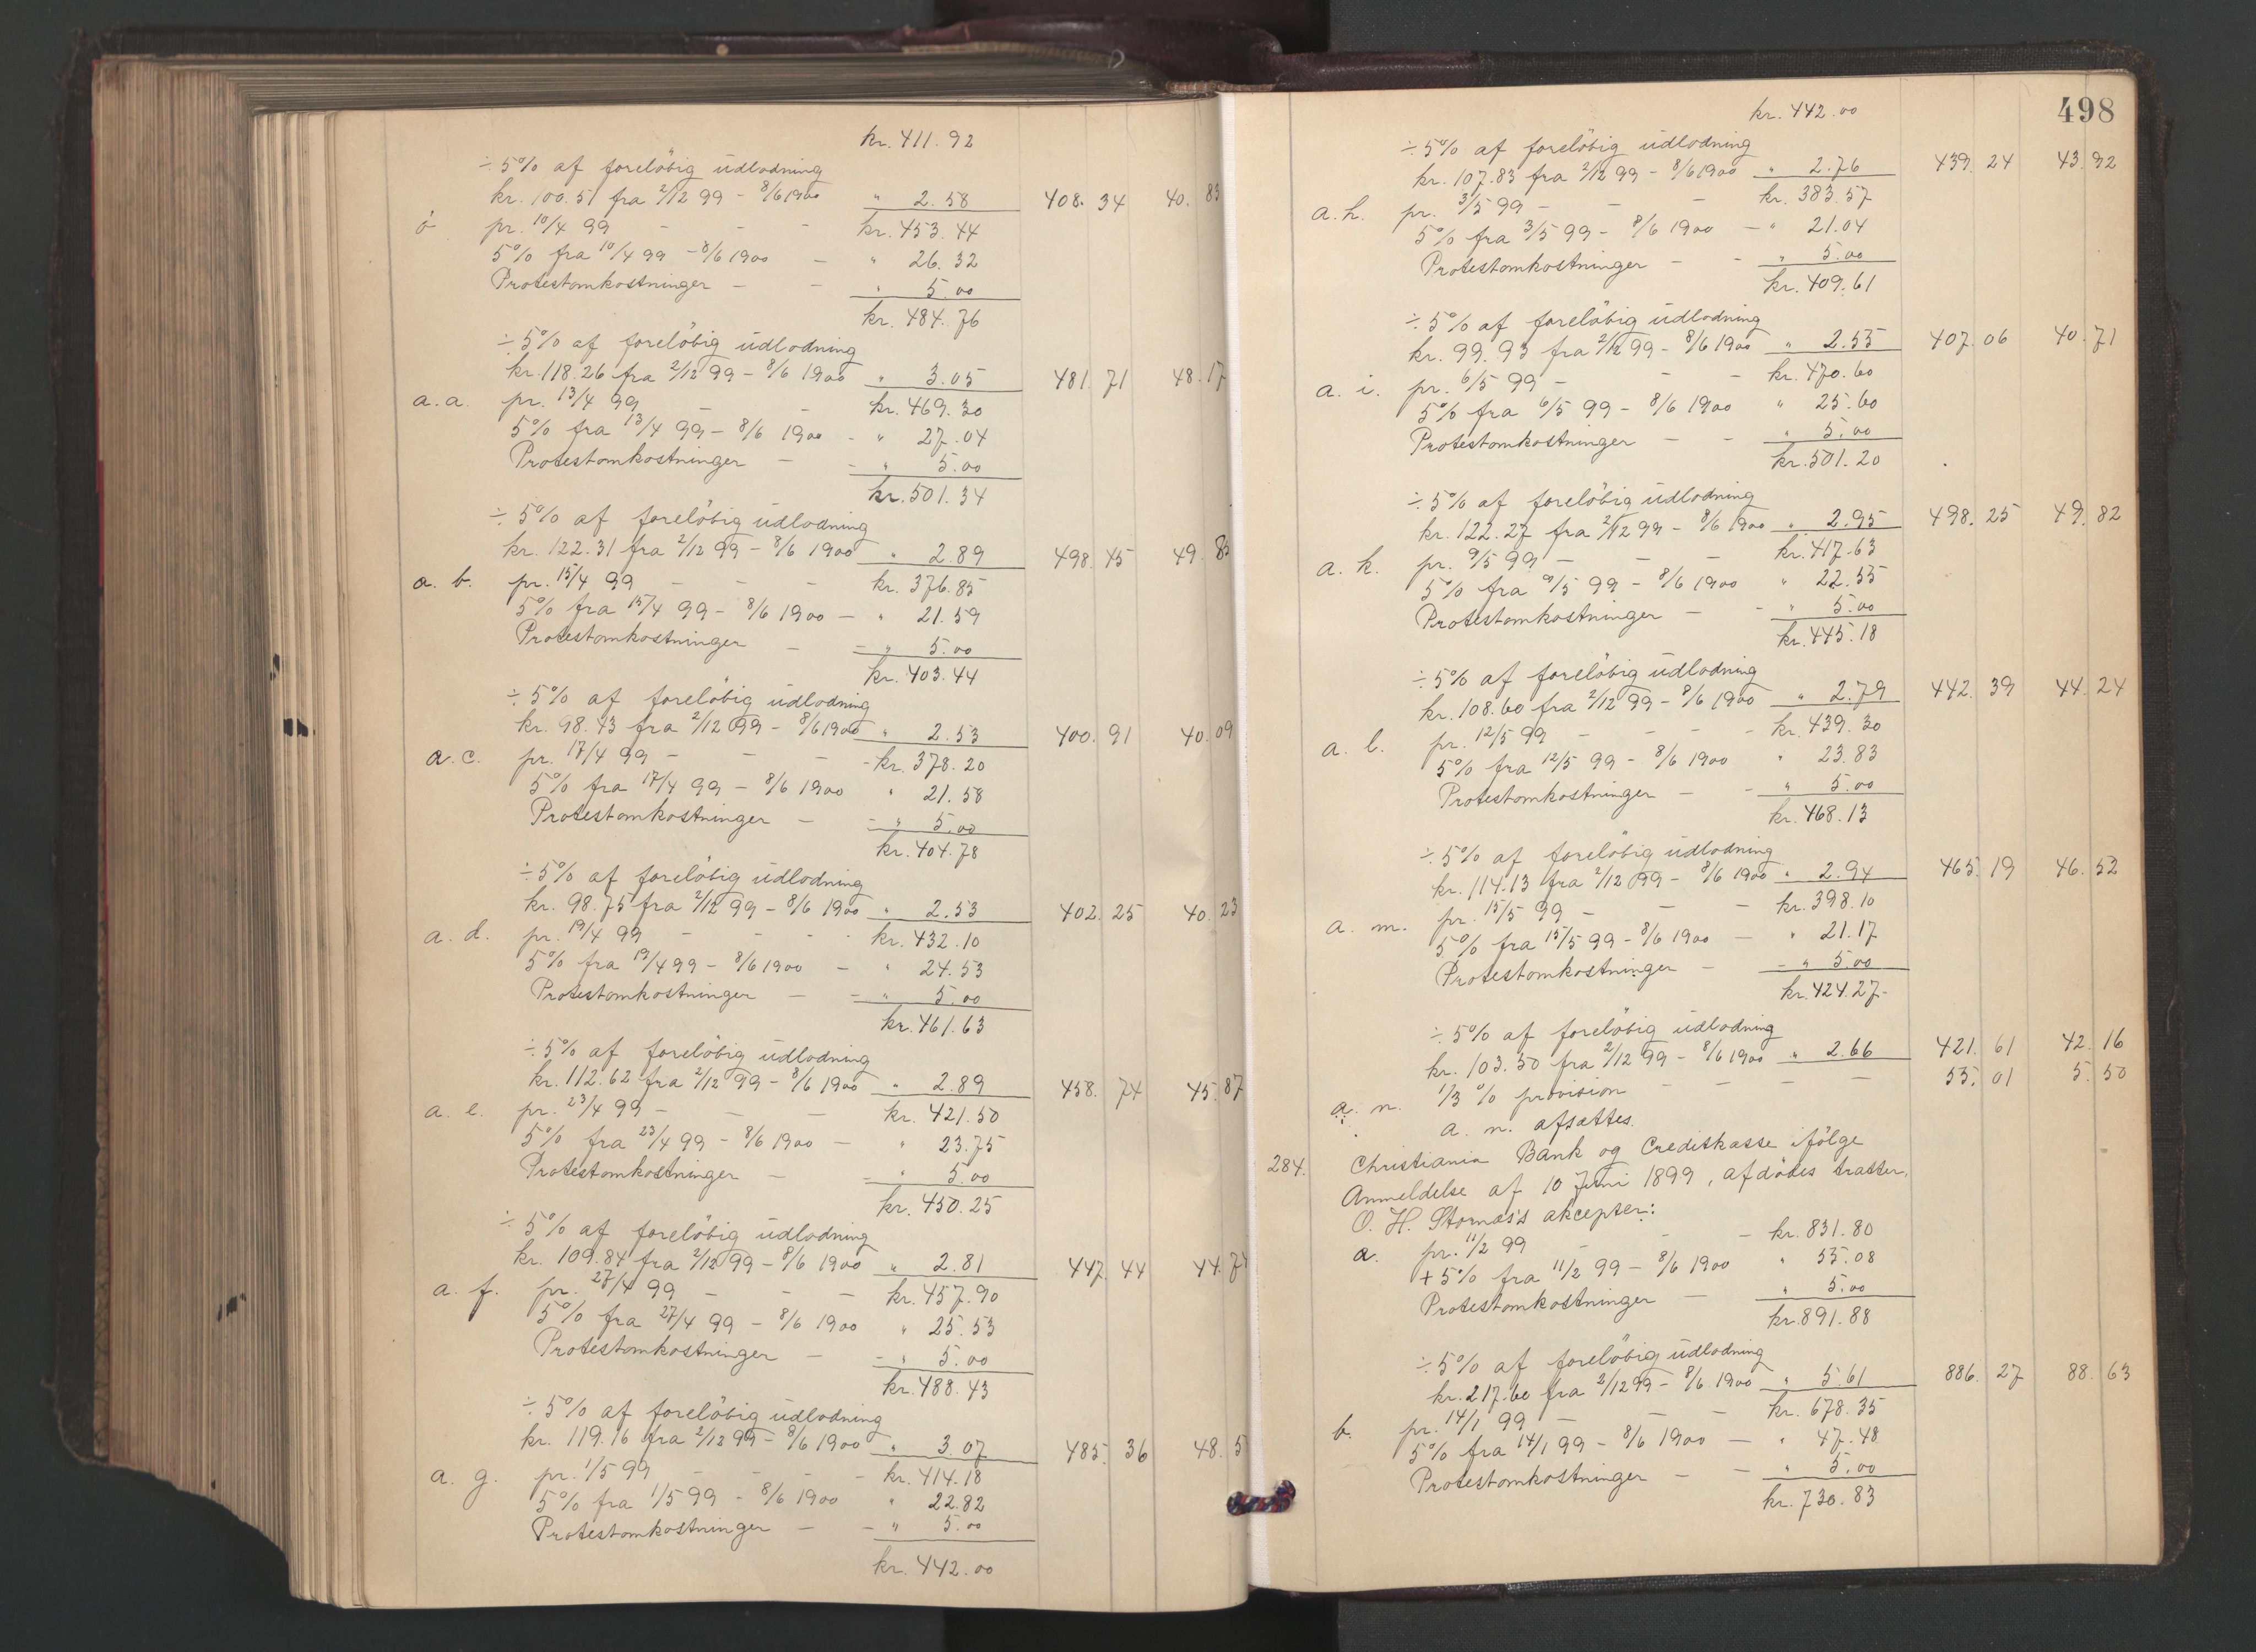 kr. 411.92
÷ 5% af foreløbig udlodning
kr. 100.51 fra 2/12 99 - 8/6 1900 " 2.58 408. 34 40. 83
ö pr. 10/4 99 - - - kr. 453.44
5% fra 10/4 99 - 8/6 1900 - " 26.32
Protestomkostninger - - " 5.00
kr. 484.76
÷ 5% af foreløbig udlodning
kr. 118.26 fra 2/12 99 - 8/6 1900 " 3.05 481. 71 48. 17
a. a. pr. 13/4 99 - - kr. 469.30
5% fra 13/4 99 - 8/6 1900 - " 27.04
Protestomkostninger - - " 5.00
kr. 501.34
÷ 5% af foreløbig udlodning
kr. 122.31 fra 2/12 99 - 8/6 1900 " 2.89 498. 45 49. 8
a. b. pr. 15/4 99 - - - kr. 376.85
5% fra 15/4 99 - 8/6 1900 - " 21.59
Protestomkostninger - - " 5.00
kr. 403.44
÷ 5% af foreløbig udlodning
kr. 98.43 fra 2/12 99 - 8/6 1900 " 2.53 400. 91 40. 09
a. c. pr. 17/4 99 - - - kr. 378.20
5% fra 17/4 99 - 8/6 1900 " 21.58
Protestomkostninger - - " 5.00
kr. 404.78
÷ 5% af foreløbig udlodning
kr. 98.75 fra 2/12 99 - 8/6 1900 " 2.53 402. 25 40. 23
a. d. pr. 19/4 99 - - - kr. 432.10
5% fra 19/4 99 - 8/6 1900 - " 24.53
Protestomkostninger - - " 5.00
kr. 461.63
÷ 5% af foreløbig udlodning
kr. 112.62 fra 2/12 99 - 8/6 1900 " 2.89 458. 74 45. 87
a. e. pr. 23/4 99 - - - kr. 421.50
5% fra 23/4 99 - 8/6 1900 - " 23.75
Protestomkostninger - - " 5.00
kr. 450.25
÷ 5% af foreløbig udlodning
kr. 109.84 fra 2/12 99 - 8/6 1900 " 2.81 447. 44 44. 7
a. f. pr. 27/4 99 - - - kr. 457.90
5% fra 27/4 99 - 8/6 1900 " 25.53
Protestomkostninger - - " 5.00
kr. 488.43
÷ 5% af foreløbig udlodning
kr. 119.16 fra 2/12 99 - 8/6 1900 " 3.07 485. 36 48. 5
a. g. pr. 1/5 99 - - - kr. 414.18
5% fra 1/5 99 - 8/6 1900 " 22.82
Protestomkostninger - - " 5.00
kr. 442.00
498
kr. 442.00
÷ 5% af foreløbig udlodning
kr. 107.83 fra 2/12 99 - 8/6 1900 " 2.76 439. 24 43. 92
a. h. pr. 3/5 99 - - - kr. 383.57
5% fra 3/5 99 - 8/6 1900 - " 21.04
Protestomkostninger - - " 5.00
kr. 409.61
÷ 5% af foreløbig udlodning
kr. 99.93 fra 2/12 99 - 8/6 1900 " 2.55 407. 06 40. 71
a. i. pr. 6/5 99 - - - kr. 470.60
5% fra 6/5 99 - 8/6 1900 " 25.60
Protestomkostninger - - " 5.00
kr. 501.20
÷ 5% af foreløbig udlodning
kr. 122.27 fra 2/12 99 - 8/6 1900 " 2.95 498. 25 49. 82
a. k. pr. 9/5 99 - - - kr. 417.63
5% fra 9/5 99 - 8/6 1900 " 22.55
Protestomkostninger - - " 5.00
kr. 445.18
÷ 5% af foreløbig udlodning
kr. 108.60 fra 2/12 99 - 8/6 1900 " 2.79 442. 39 44. 24
a. l. pr. 12/5 99 - - - kr. 439.30
5% fra 12/5 99 - 8/6 1900 " 23.83
Protestomkostninger - - " 5.00
kr. 468.13
÷ 5% af foreløbig udlodning
kr. 114.13 fra 2/12 99 - 8/6 1900 " 2.94 465. 19 46. 52
a. m. pr. 15/5 99 - - - kr. 398.10
5% fra 15/5 99 - 8/6 1900 - " 21.17
Protestomkostninger - - " 5.00
kr. 424.27-
÷ 5% af foreløbig udlodning
kr. 103.50 fra 2/12 99 - 8/6 1900 " 2.66 421. 61 42. 16
a. n. 1/3 % provision - - - - 55. 01 5. 50
a. n. afsættes.
284. Christiania Bank og Creditkasse ifølge
Anmeldelse af 10 Juni 1899, afdødes tratter,
O. H. Stornæs's akcepter:
a. pr. 11/2 99 - - - kr. 831.80
+ 5% fra 11/2 99 - 8/6 1900 " 55.08
Protestomkostninger - " 5.00
kr. 891.88
÷ 5% af foreløbig udlodning
kr. 217.60 fra 2/12 99 - 8/6 1900 " 5.61 886. 27 88. 63
b. pr. 14/1 99 - - - kr. 678.35
5% fra 14/1 99 - 8/6 1900 - " 47.48
Protestomkostninger - - " 5.00
kr. 730.83